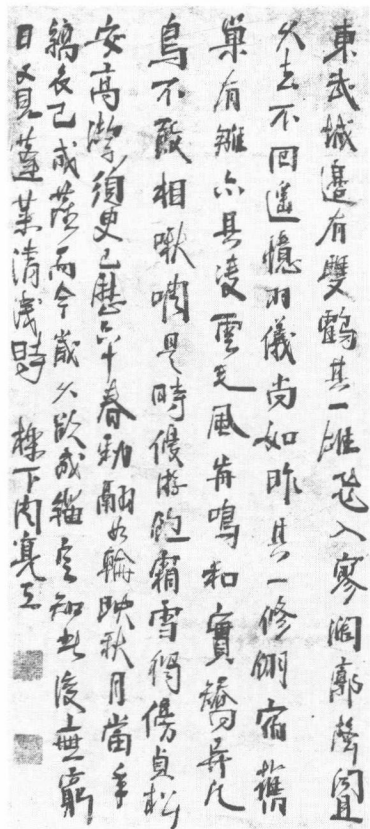 東武城邊有雙鶴其一雄飛入寥闊廓聲聞且
久去不回遙憶羽儀尚如昨其一修翎宿舊
巢有雛亦具凌雲毛風前鳴和實矯異凡
鳥不敢相啾啁是時優游飽霜雪得傍貞松
安高潔須臾已歷六十春勁翮如輪映秋月當年
縞衣已成蒼而今歲久欲成緇定知此後無窮
日又見蓬萊清淺時 櫟下周亮工